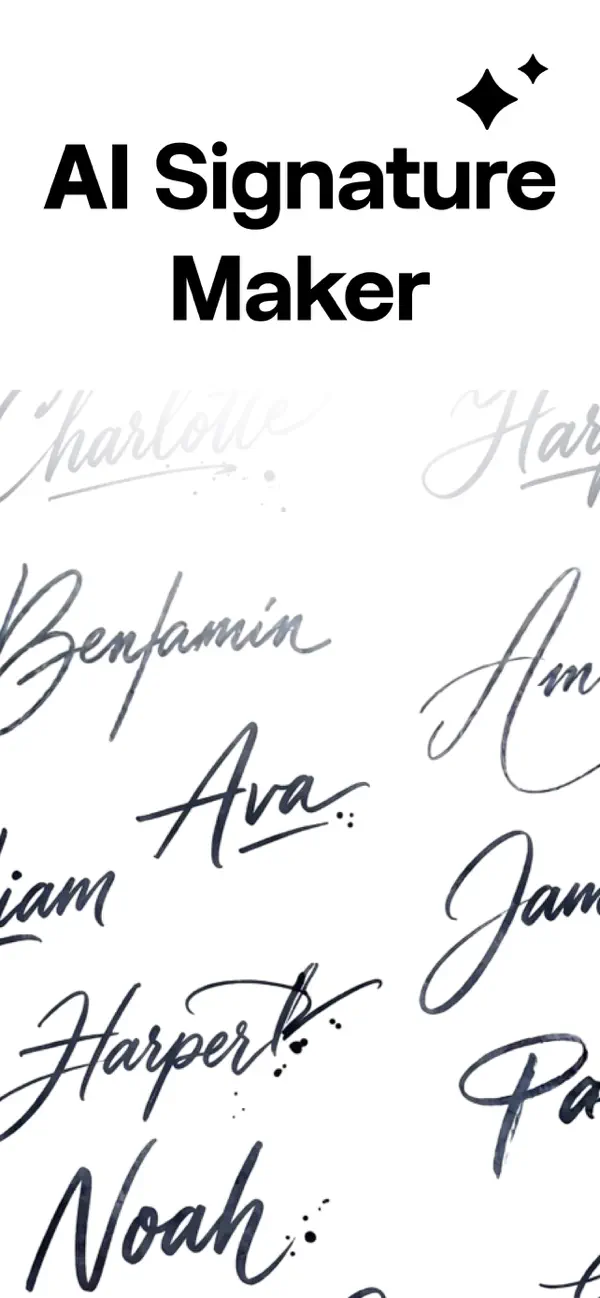 AI Signature
Maker
Charlotte
Harp
Benjamin
Am
Ava
iam
Jam
Harper
Pa
Noah